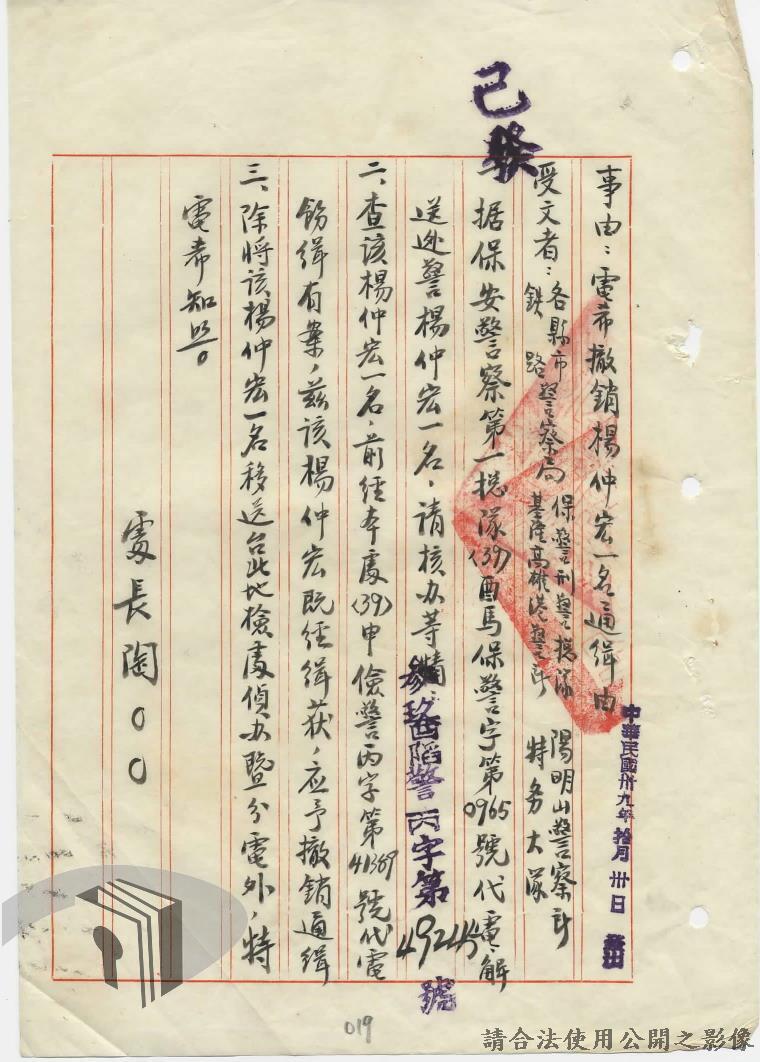 已發
事由：電希撤銷楊仲宏一名通緝由
中華民國卅九年拾月卅日發出
受文者：各縣市鉄路警察局 保警刑警總隊 基隆高雄港警所 陽明山警察所 特务大隊
一、据保安警察第一総隊(39)酉馬保警字第0965號代電、解
送逃警楊仲宏一名，请核办等情。
酉陷警丙字第49245號
二、查該楊仲宏一名，前经本處(39)申儉警丙字第41369號代電
飭緝有案，茲該楊仲宏既经緝获，应予撤銷通緝
三、除將該楊仲宏一名移送台北地檢處偵办暨分電外，特
電希知照。
處長陶〇〇
019
請合法使用公開之影像